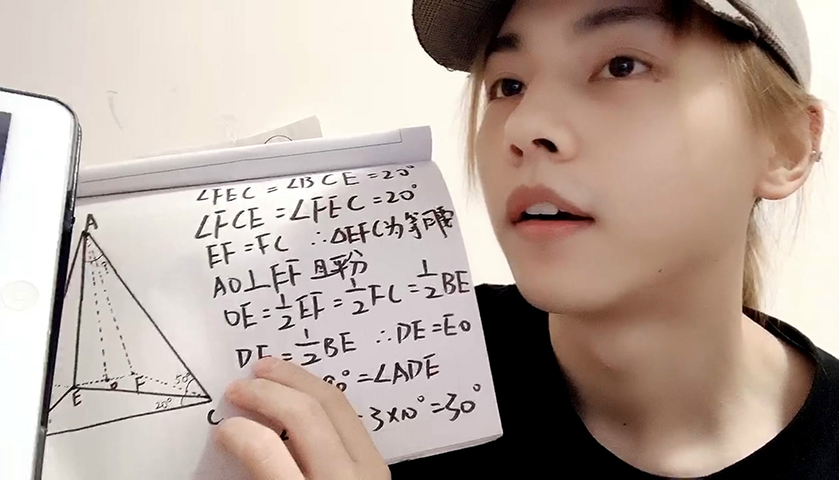 ∠FEC = ∠BCE = 20°
∠FCE = ∠FEC = 20°
EF = FC ∴ △EFC为等腰
AO⊥EF 且平分
OE = 1/2 EF = 1/2 FC = 1/2 BE
DE = 1/2 BE ∴ DE = EO
0° = ∠ADE
3×10° = 30°
A
E
O
F
50°
20°
C